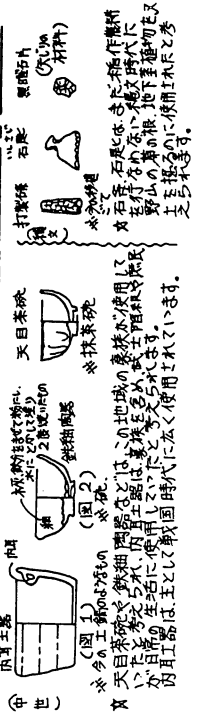 (中世)
内耳土器
内耳
(図1)
※今の土鍋のようなもの
灰、鉄分をまぜて粉にし、
水にとかして塗り
2度焼いたもの
鉄釉陶器
釉
(図2)
※碗
天目茶碗
※抹茶碗
☆天目茶碗や鉄釉陶器などは、この地域の豪族が使用して
いたと考えられ、内耳土器は、豪族を含め武士階級や庶民
が日常の生活に使用していたと考えられます。
内耳土器は、主として戦国時代に広く使用されています。
(縄文)
打製石斧
※今の移植ごて
石匙
黒曜石片
(矢じりの材料)
☆石斧、石匙とはまだ稲作農耕
を行なわない縄文時代に
野山の草の根、地下茎植物を又
土を掘るのに使用されたと考
えられます。